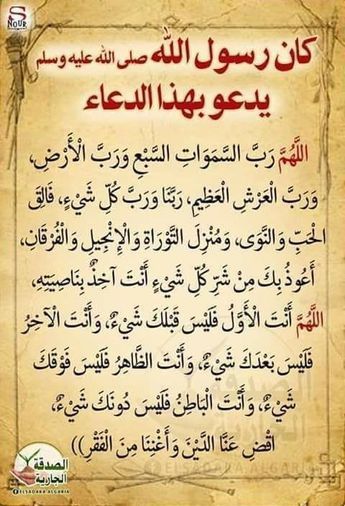 S
NOUR
كان رسول الله صلى الله عليه وسلم
يدعو بهذا الدعاء
اللَّهُمَّ رَبَّ السَّمَوَاتِ السَّبْعِ وَرَبَّ الْأَرْضِ،
وَرَبَّ الْعَرْشِ الْعَظِيمِ، رَبَّنَا وَرَبَّ كُلِّ شَيْءٍ، فَالِقَ
الْحَبِّ وَالنَّوَى، وَمُنْزِلَ التَّوْرَاةِ وَالْإِنْجِيلِ وَالْفُرْقَانِ،
أَعُوذُ بِكَ مِنْ شَرِّ كُلِّ شَيْءٍ أَنْتَ آخِذٌ بِنَاصِيَتِهِ،
اللَّهُمَّ أَنْتَ الْأَوَّلُ فَلَيْسَ قَبْلَكَ شَيْءٌ، وَأَنْتَ الْآخِرُ
فَلَيْسَ بَعْدَكَ شَيْءٌ، وَأَنْتَ الظَّاهِرُ فَلَيْسَ فَوْقَكَ
شَيْءٌ، وَأَنْتَ الْبَاطِنُ فَلَيْسَ دُونَكَ شَيْءٌ،
اقْضِ عَنَّا الدَّيْنَ وَأَغْنِنَا مِنَ الْفَقْرِ))
الصدقة
الجارية
ELSADAKA.ALGARIA